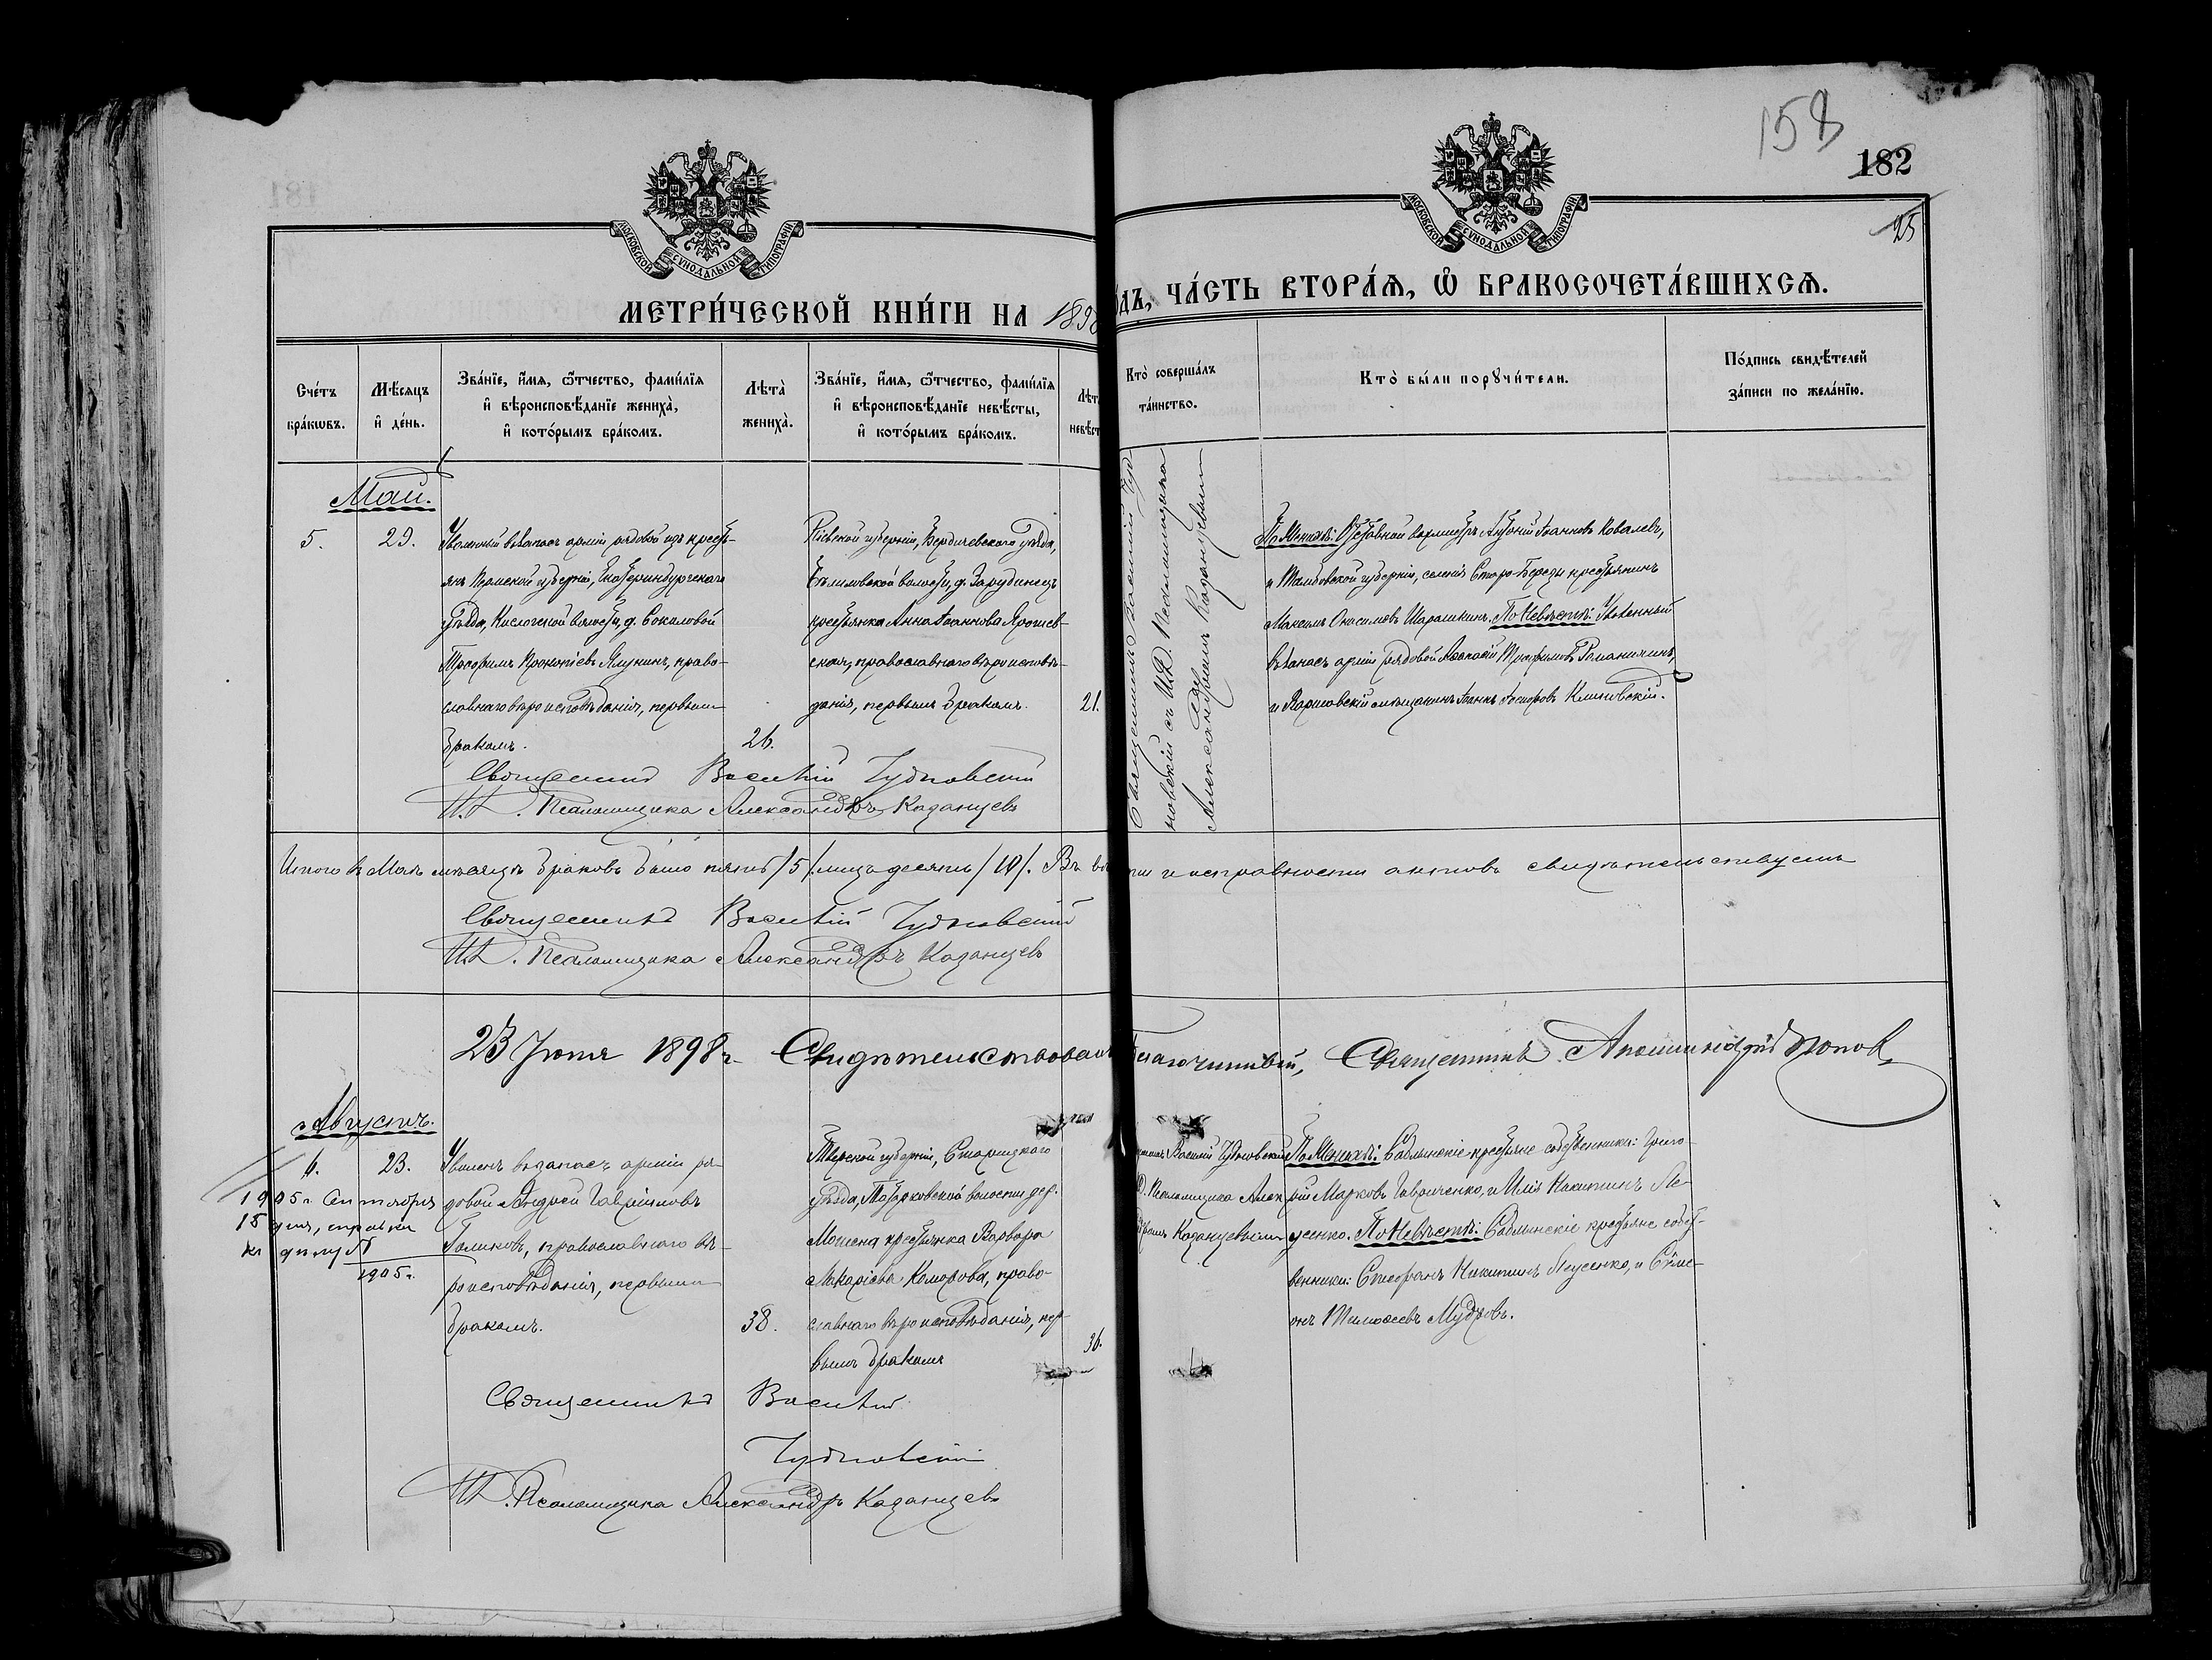 158
182
25
МОСКОВСКОЙ СУНОДАЛЬНОЙ ТИПОГРАФІИ
МОСКОВСКОЙ СУНОДАЛЬНОЙ ТИПОГРАФІИ
МЕТРИ́ЧЕСКОЙ КНИ́ГИ НА 1898
ДЪ, ЧА́СТЬ ВТОРА́Ѧ, Ѽ БРАКОСОЧЕТА́ВШИХСѦ.
Сче́тъ бра́кѡвъ.
Мѣ́сяцъ и҆ де́нь.
Зва́нїе, и҆́мя, ѻ҆́тчество, фами́лїя и҆ вѣроисповѣ́данїе жениха̀, и҆ кото́рымъ бра́комъ.
Лѣта̀ жениха̀.
Зва́нїе, и҆́мя, ѻ҆́тчество, фами́лїя и҆ вѣроисповѣ́данїе невѣ́сты, и҆ кото́рымъ бра́комъ.
Лѣт невѣст
Кто̀ соверша́лъ та́инство.
Кто̀ бы́ли порꙋчи́тели.
По́дпись свидѣ́телей за́писи по жела́нїю.
Май.
5.
29.
Уволенный въ запасъ арміи рядовой изъ кресть-
янъ Пермской губерніи, Екатеринбургскаго
уѣзда, Кислогской волости, д. Соколовой
Трофимъ Прокопіевъ Ялунинъ, право-
славнаго вѣроисповѣданія, первымъ
бракомъ.
26.
Кіевской губерніи, Бердичевскаго уѣзда,
волости, д. Зарудинецъ
крестьянка Анна Іоаннова Ярошев-
ская, православнаго вѣроисповѣ-
данія, первымъ бракомъ.
21.
Священникъ Василій Чуд-
новскій съ И.Д. Псаломщика
Александромъ Казанцевымъ
По Женихѣ: Отставной вахмистръ Антоній Іоанновъ Ковалевъ,
и Тамбовской губерніи, селенія Старо-Березы крестьянинъ
Максимъ Онисимовъ Шарашкинъ. По Невѣстѣ: Уволенный
въ запасъ арміи рядовой Трофимовъ Романихинъ,
и мѣщанинъ Іоаннъ Климовскій.
Священникъ Василій Чудновскій
И.Д. Псаломщика Александръ Казанцевъ
Итого въ Маѣ мѣсяцѣ браковъ было пять /5/ лицъ десять /10/. Въ вѣ
ти и исправности актовъ свидѣтельствуемъ
Священникъ Василій Чудновскій
И.Д. Псаломщика Александръ Казанцевъ
23 Іюня 1898 г. Свидѣтельствовалъ
Благочинный, Священникъ Аполлинарій Поповъ
Августъ.
6.
23.
1905 г. Сентября
15 дня, справка
къ дѣлу №
1905 г.
Уволен. въ запасъ арміи ря-
довой Андрей Гавриловъ
Голиковъ, православнаго вѣ-
роисповѣданія, первымъ
бракомъ.
38.
Тверской губерніи, Старицкаго
уѣзда, волости дер.
крестьянка Варвара
Макаріева Комарова, право-
славнаго вѣроисповѣданія, пер-
вымъ бракомъ
36.
Василій Чудновскій
Псаломщика Алек
Казанцевымъ
По Женихѣ: Саблинскіе крестьяне собственники: Григо-
рій Марковъ Гавриченко, и Илія Никитинъ Пе-
усенко. По Невѣстѣ: Саблинскіе крестьяне собст-
венники: Стефанъ Никитинъ Пеусенко, и Симе-
онъ Тимоѳеевъ Мудровъ.
Священникъ Василій
Чудновскій
И.Д. Псаломщика Александръ Казанцевъ